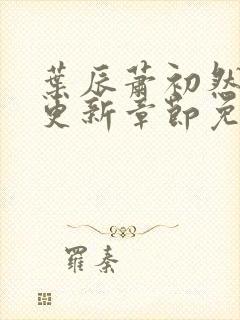 葉辰蕭初然
更新章節免
羅秦